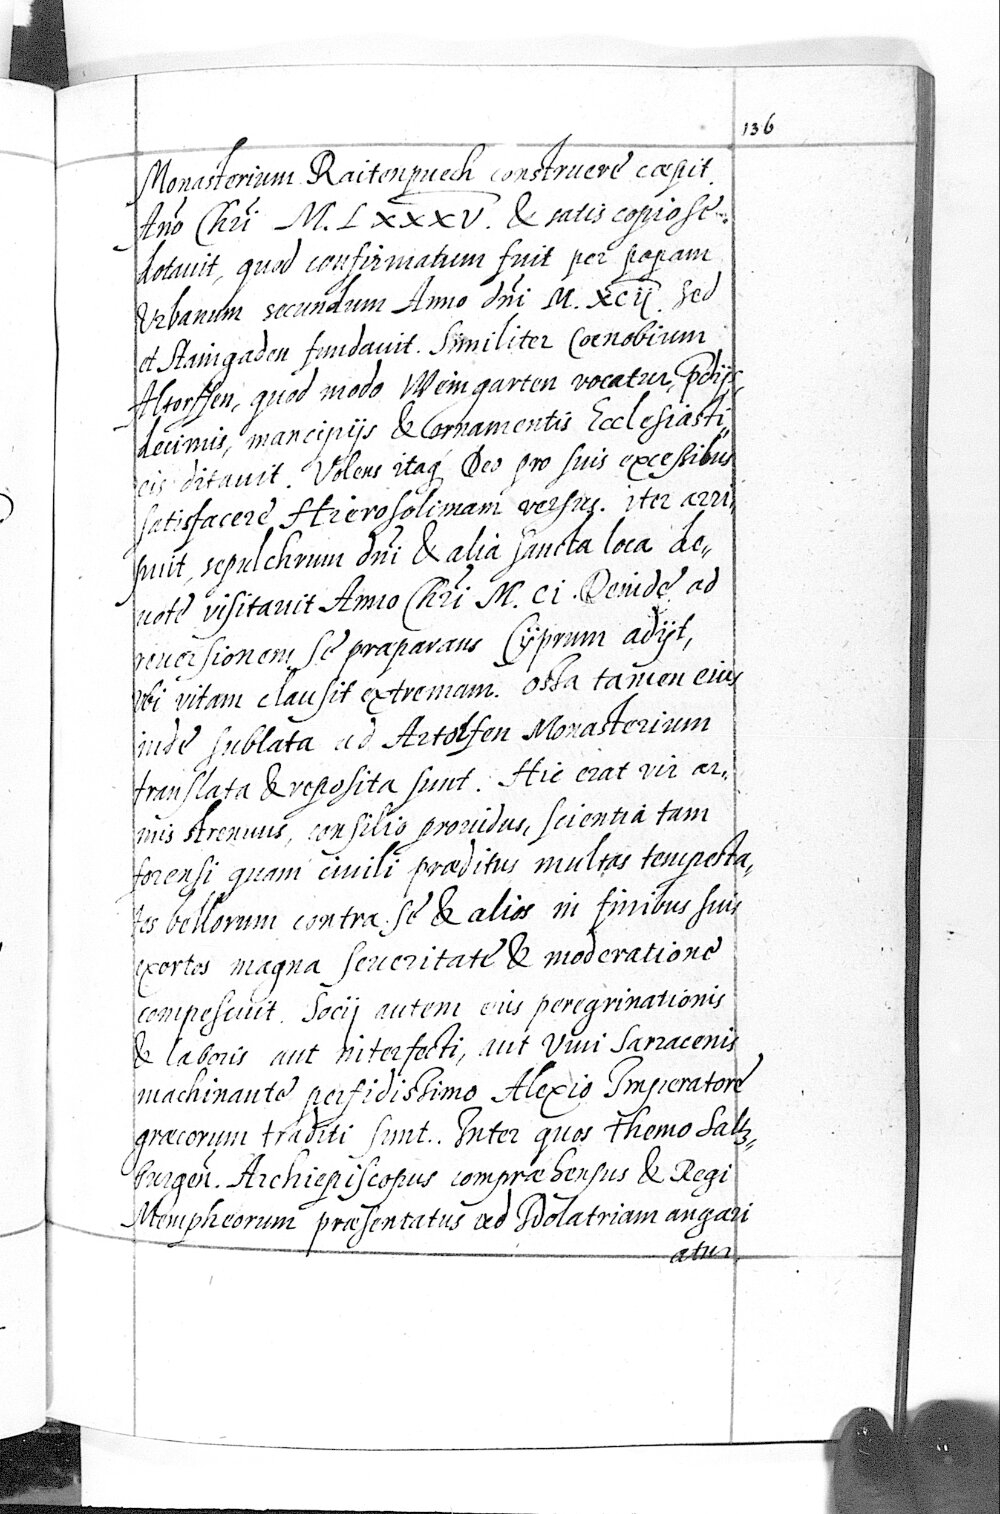 136
Monasterium Raitenpuech construere cœpit
Año Chr̃i M. LXXXV. & satis copiose
dotauit, quod confirmatum fuit per papam
Vrbanum secundum Anno dñi M. XCij. Sed
et Staingaden fundauit. Similiter Cœnobium
Altorffen, quod modo Weingarten vocatur, p̃dijs,
decimis, mancipijs & Ornamentis Ecclesiasti„
cis ditauit. Volens itaq́ Deo pro suis excessibus
satisfacere Hierosolimam versus. iter arri„
puit, sepulchrum dñi & alia sancta loca de„
uote visitauit Anno Chr̃i M. CI. Deinde ad
reuersionem se præparans Cÿprum adijt,
vbi vitam clausit extremam. Ossa tamen eius
inde sublata ad Artolfen Monasterium
translata & reposita sunt. Hic erat vir ar„
mis strenuus, consilio prouidus, scientia tam
forensi quam ciuili præditus multas tempesta„
tes bellorum contra se & alios in finibus suis
exortos magna seueritate & moderatione
compescuit. Socij autem eius peregrinationis
& laboris aut interfecti, aut viui Sarracenis
machinante perfidissimo Alexio Imperatore
græcorum traditi sunt. Inter quos Themo Saltz„
burgeñ. Archiepiscopus compræhensus & Regi
Mempheorum præsentatus ad Idolatriam angari
atur.